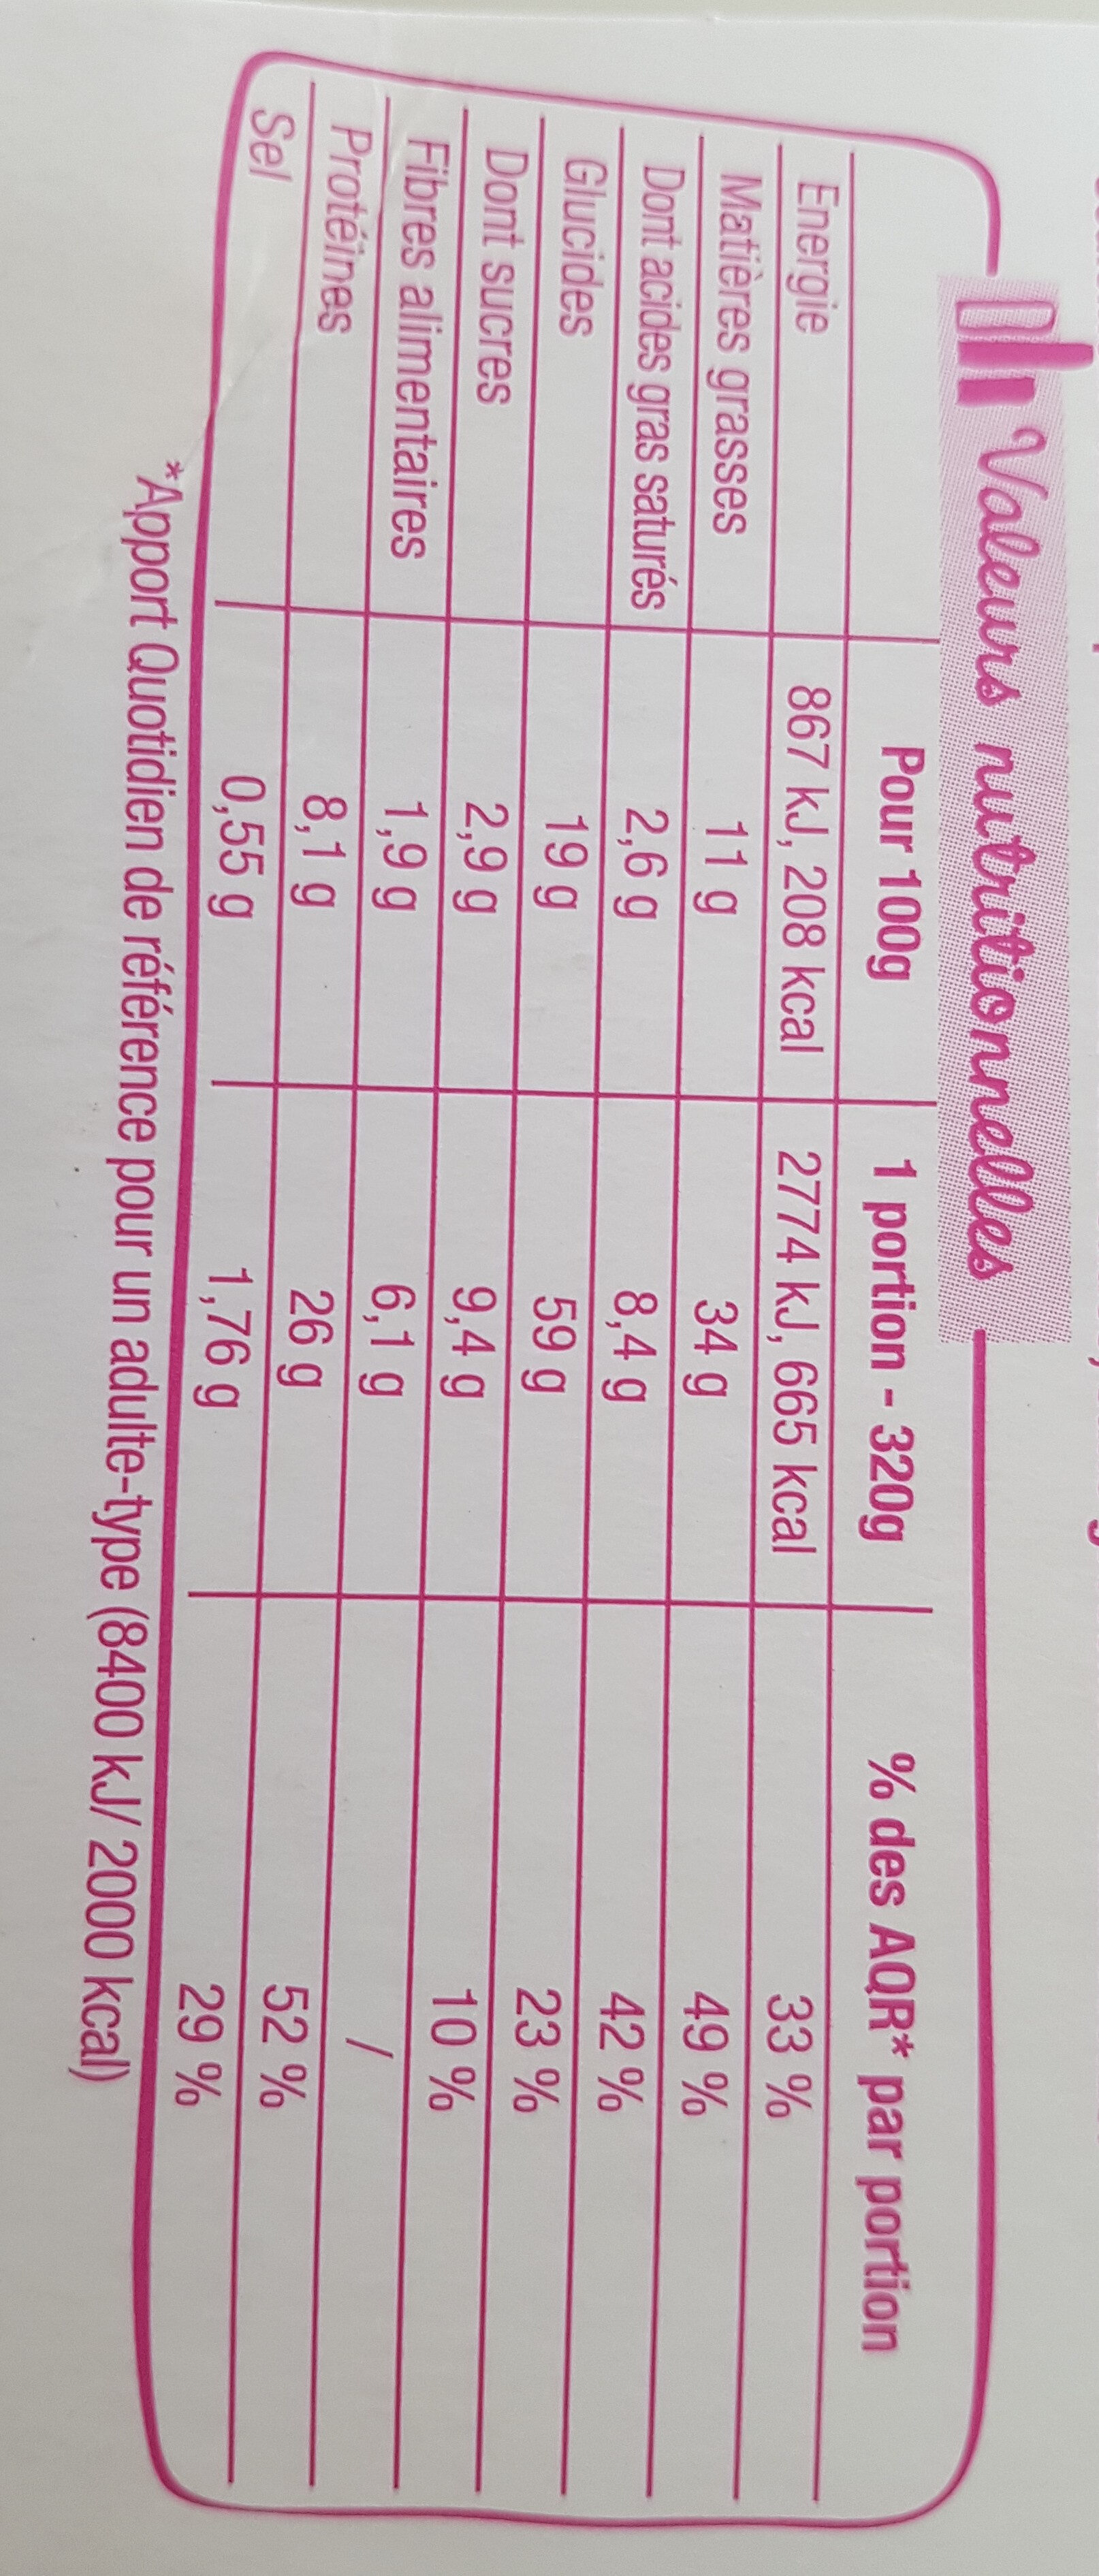 Valeurs nutritionnelles
Pour 100g 1 portion - 320g % des AQR* par portion
Energie 867 kJ, 208 kcal 2774 kJ, 665 kcal 33 %
Matières grasses 11 g 34 g 49 %
Dont acides gras saturés 2,6 g 8,4 g 42 %
Glucides 19 g 59 g 23 %
Dont sucres 2,9 g 9,4 g 10 %
Fibres alimentaires 1,9 g 6,1 g /
Protéines 8,1 g 26 g 52 %
Sel 0,55 g 1,76 g 29 %
*Apport Quotidien de référence pour un adulte-type (8400 kJ/ 2000 kcal)